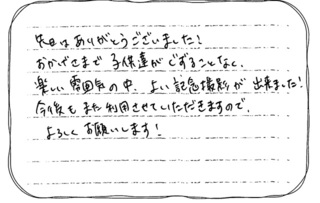 先日はありがとうございました!
おかげさまで子供達がぐずることなく、
楽しい雰囲気の中、よい記念撮影が出来ました!
今後もまた利用させていただきますので、
よろしくお願いします!